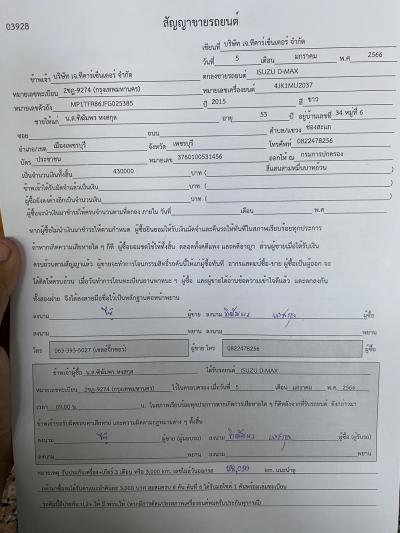 03928
สัญญาขายรถยนต์
เขียนที่ บริษัท เจ.ทีคาร์เซ็นเตอร์ จำกัด
วันที่ 5 เดือน มกราคม พ.ศ 2566
ข้าพเจ้า บริษัท เจ.ทีคาร์เซ็นเตอร์ จำกัด ตกลงขายรถยนต์ ISUZU D-MAX
หมายเลขทะเบียน 2ขฎ-9274 (กรุงเทพมหานคร) หมายเลขเครื่องยนต์ 4JK1MU2037
หมายเลขตัวถัง MP1TFR86JFG025385 ปี 2015 สี ขาว
ขายให้แก่ น.ส.ทิฆัมพร หงสกุล อายุ 53 ปี อยู่บ้านเลขที่ 34 หมู่ที่ 6
ซอย ถนน ตำบล/แขวง ช่องสะแก
อำเภอ/เขต เมืองเพชรบุรี จังหวัด เพชรบุรี โทรศัพท์ 0822478256
บัตร ประชาชน หมายเลข 3760100531456 ออกให้ ณ กรมการปกครอง
เป็นจำนวนเงินทั้งสิ้น 430000 บาท ( สี่แสนสามหมื่นบาทถ้วน )
ข้าพเจ้าได้รับมัดจำแล้วเป็นเงิน บาท ( )
ผู้ซื้อยังคงค้างอีกเป็นจำนวนเงิน บาท ( )
ผู้ซื้อจะนำเงินมาชำระให้ครบจำนวนตามที่ตกลง ภายใน วันที่ เดือน พ.ศ.
หากผู้ซื้อไม่นำเงินมาชำระให้ตามกำหนด ผู้ซื้อยินยอมให้ริบเงินมัดจำและคืนรถให้ทันทีในสภาพเรียบร้อยทุกประการ
ถ้าหากเกิดความเสียหายใด ๆ ก็ดี ผู้ซื้อยอมชดใช้ให้ทั้งสิ้น ตลอดทั้งคดีแพ่ง และคดีอาญา ส่วนผู้ขายเมื่อได้รับเงิน
ครบถ้วนตามสัญญาแล้ว ผู้ขายจะทำการโอนกรรมสิทธิ์รถคันนี้ให้แก่ผู้ซื้อทันที อากรแสตมป์ซื้อ-ขาย ผู้ซื้อเป็นผู้ออก จะ
ได้คิดให้ครบถ้วน เมื่อวันทำการโอนทะเบียนยานพาหนะ ฯ ผู้ซื้อ และผู้ขายได้อ่านข้อความเข้าใจดีแล้ว และตกลงกัน
ทั้งสองฝ่าย จึงได้ลงลายมือชื่อไว้เป็นหลักฐานต่อหน้าพยาน
ลงนาม ผู้ขาย ลงนาม ทิฆัมพร หงสกุล ผู้ซื้อ
ลงนาม พยาน ลงนาม พยาน
โทร 063-393-5027 (เซลล์จักรยร) ผู้ขาย โทร 0822478256 ผู้ซื้อ
ข้าพเจ้าผู้ซื้อ น.ส.ทิฆัมพร หงสกุล ได้รับรถยนต์ ISUZU D-MAX
หมายเลขทะเบียน 2ขฎ-9274 (กรุงเทพมหานคร) ไว้ในครอบครอง เมื่อวันที่ 5 เดือน มกราคม พ.ศ. 2566
เวลา 09.00 น. ในสภาพเรียบร้อยทุกประการหากเกิดการเสียหายใด ๆ ก็ดีหลังจากที่รับรถยนต์ ดังกล่าวมา
ข้าพเจ้าจะรับผิดชอบค่าเสียหาย และความผิดตามกฎหมายต่าง ๆ ทั้งสิ้น
ลงนาม ผู้ขาย (ผู้มอบรถ) ลงนาม ทิฆัมพร หงสกุล ผู้ซื้อ (ผู้รับรถ)
ลงนาม พยาน ลงนาม พยาน
หมายเหตุ รับประกันเครื่อง+เกียร์ 3 เดือน หรือ 5,000 km. km.